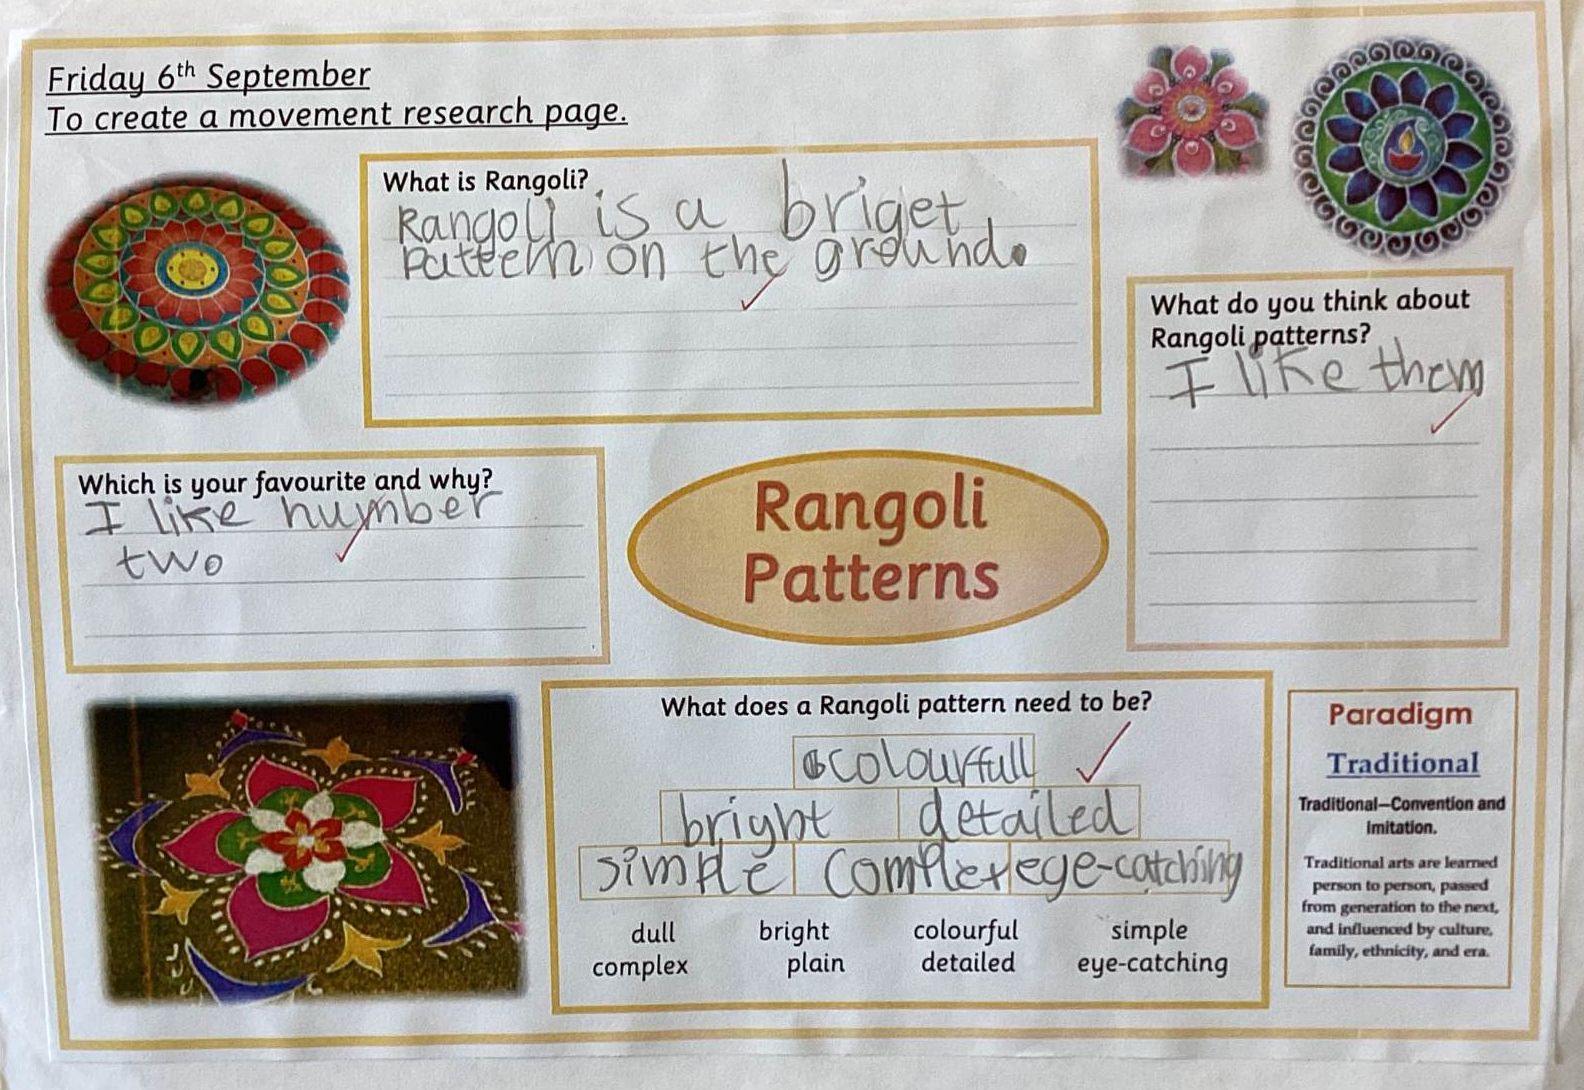 Friday 6th September
To create a movement research page.
What is Rangoli?
Rangoli is a briget
pattern on the ground.
What do you think about
Rangoli patterns?
I like them
Which is your favourite and why?
I like number
two
Rangoli
Patterns
What does a Rangoli pattern need to be?
colourfull
bright detailed
simple complex eye-catching
dull bright colourful simple
complex plain detailed eye-catching
Paradigm
Traditional
Traditional—Convention and
Imitation.
Traditional arts are learned
person to person, passed
from generation to the next,
and influenced by culture,
family, ethnicity, and era.